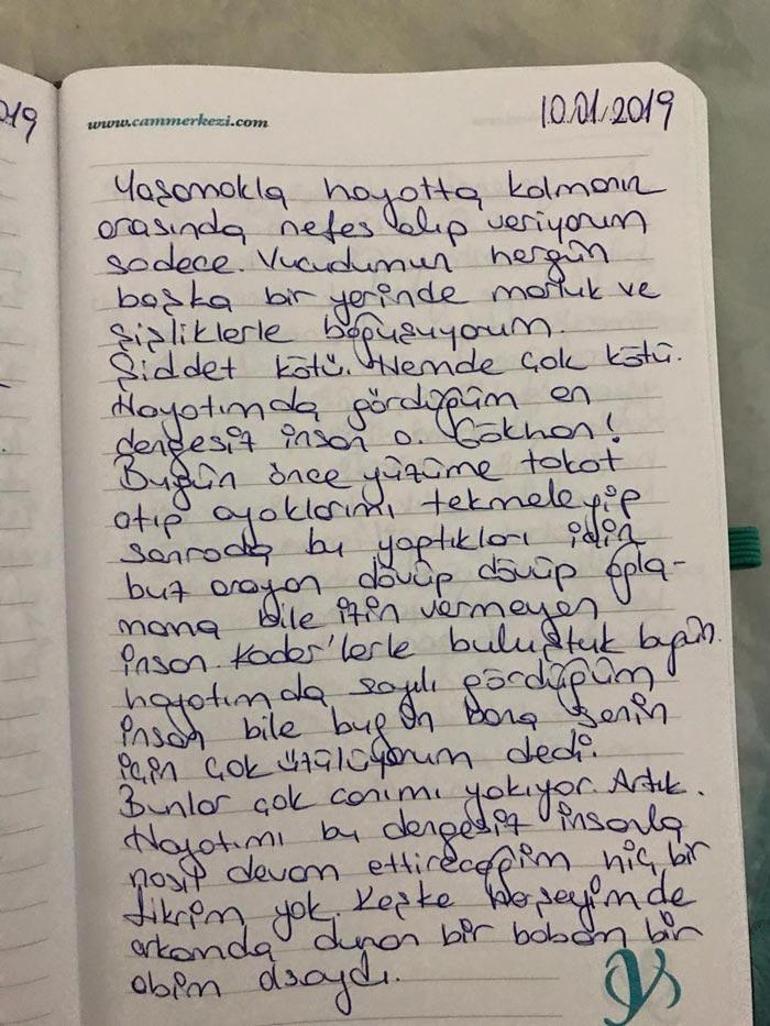 019
www.cammerkezi.com
10.01.2019
Yaşamakla hayatta kalmanın
arasında nefes alıp veriyorum
sadece. Vucudumun hergün
başka bir yerinde morluk ve
şişliklerle boğuşuyorum.
Şiddet kötü. Hemde çok kötü.
Hayatımda gördüğüm en
dengesiz insan o. Gökhan!
Bugün önce yüzüme tokat
atıp ayaklarımı tekmeleyip
sonrada bu yaptıkları için
buz arayan dövüp dövüp ağla-
mama bile izin vermeyen
insan. Kader'lerle buluştuk bugün.
hayatımda sayılı gördüğüm
insan bile bugün bana senin
için çok üzülüyorum dedi.
Bunlar çok canımı yakıyor. Artık.
Hayatımı bu dengesiz insanla
nasıl devam ettireceğim hiç bir
fikrim yok. Keşke herşeyimde
arkamda duran bir babam bir
abim olsaydı.